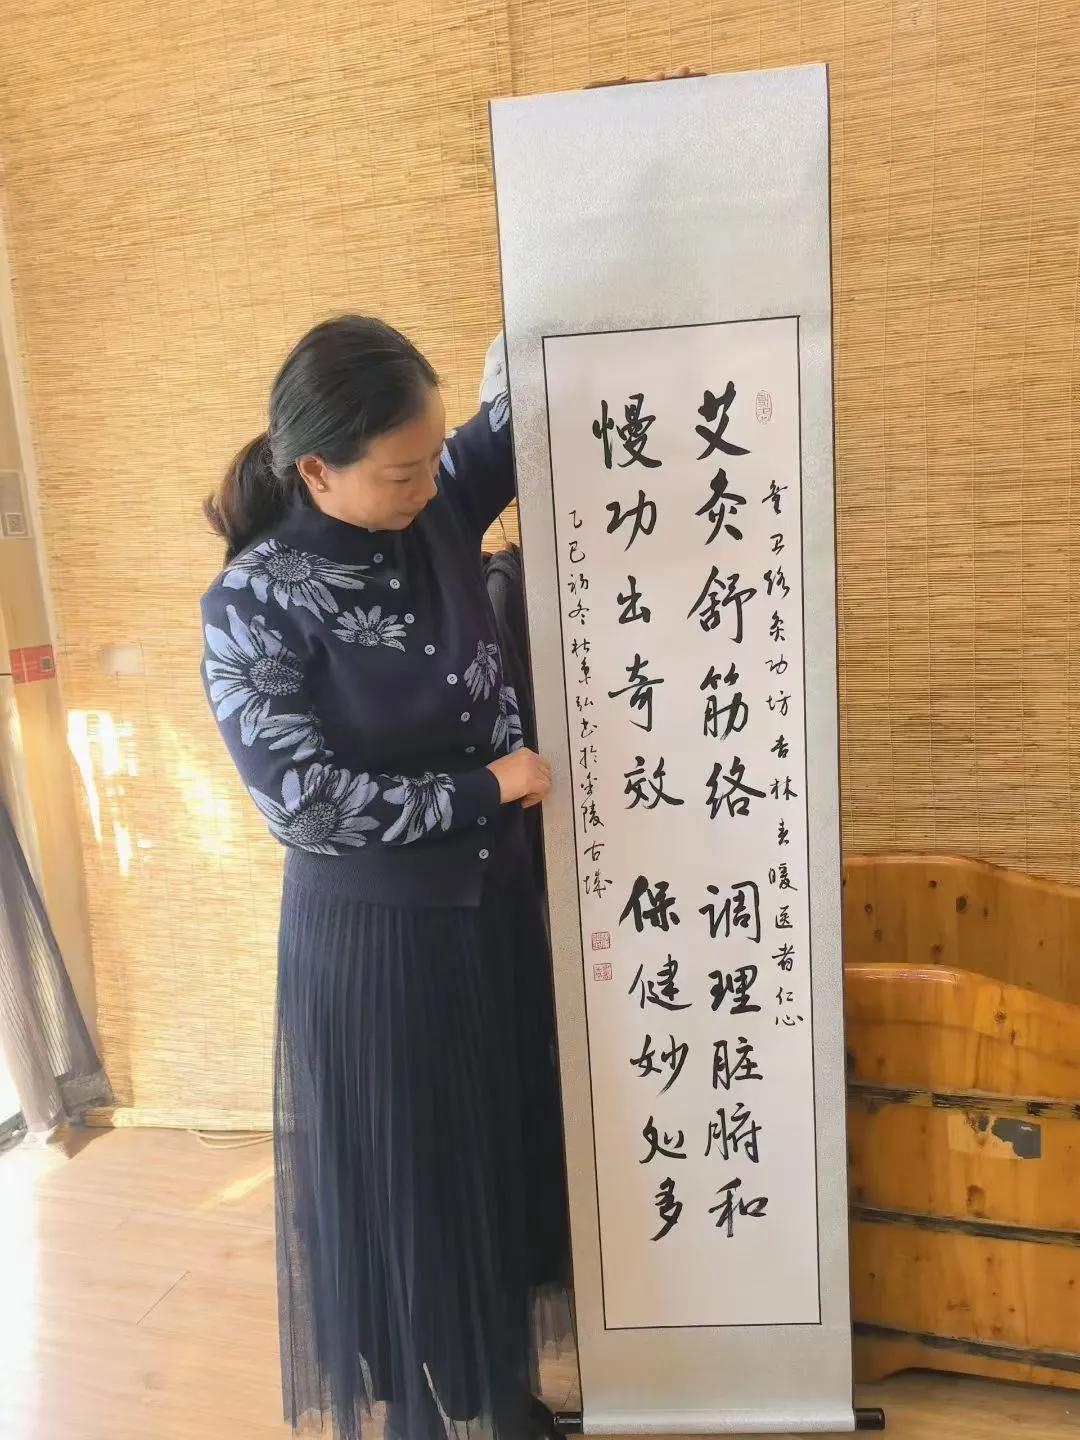 童卫路灸功坊杏林春暖医者仁心
艾灸舒筋络 调理脏腑和
慢功出奇效 保健妙处多
乙巳初冬 弘书於金陵古城